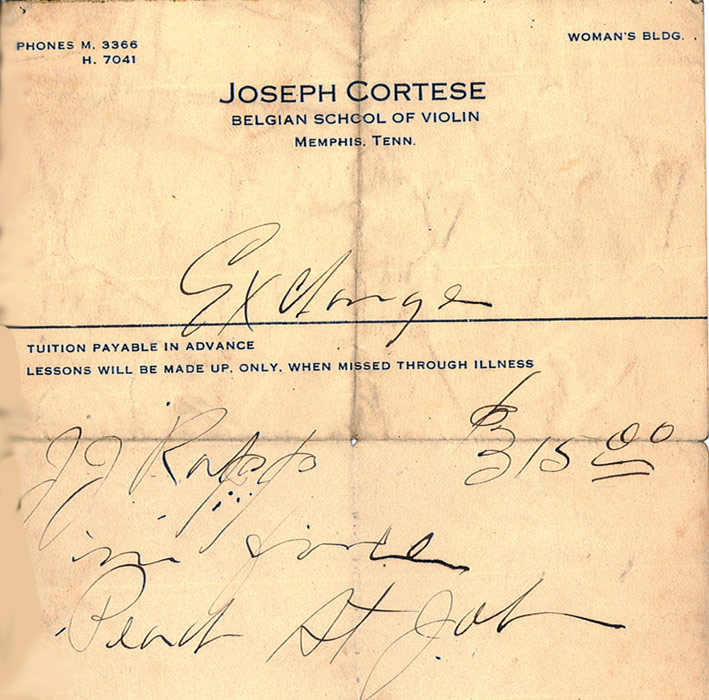 PHONES M. 3366
H. 7041
WOMAN'S BLDG.
JOSEPH CORTESE
BELGIAN SCHOOL OF VIOLIN
MEMPHIS, TENN.
Exchange
TUITION PAYABLE IN ADVANCE
LESSONS WILL BE MADE UP, ONLY, WHEN MISSED THROUGH ILLNESS
J J Rapp $315.00
St Job